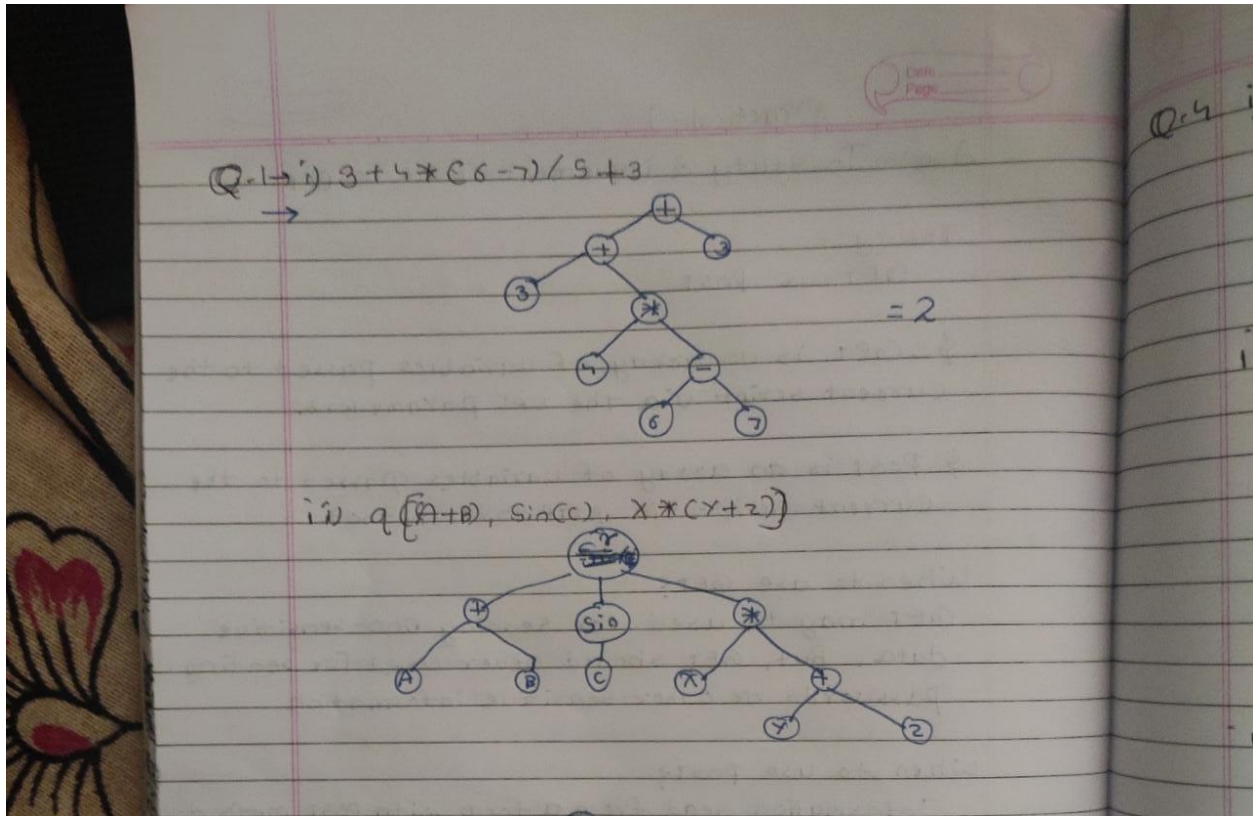 Date
Page
Q.4 i
Q.1→ i) 3+4*(6-7)/5+3
→
+
+ 3
3
* = 2
4 -
6 7
ii) q[(A+B), Sin(C), X*(Y+Z)]
+ Sin *
A B C X +
Y Z